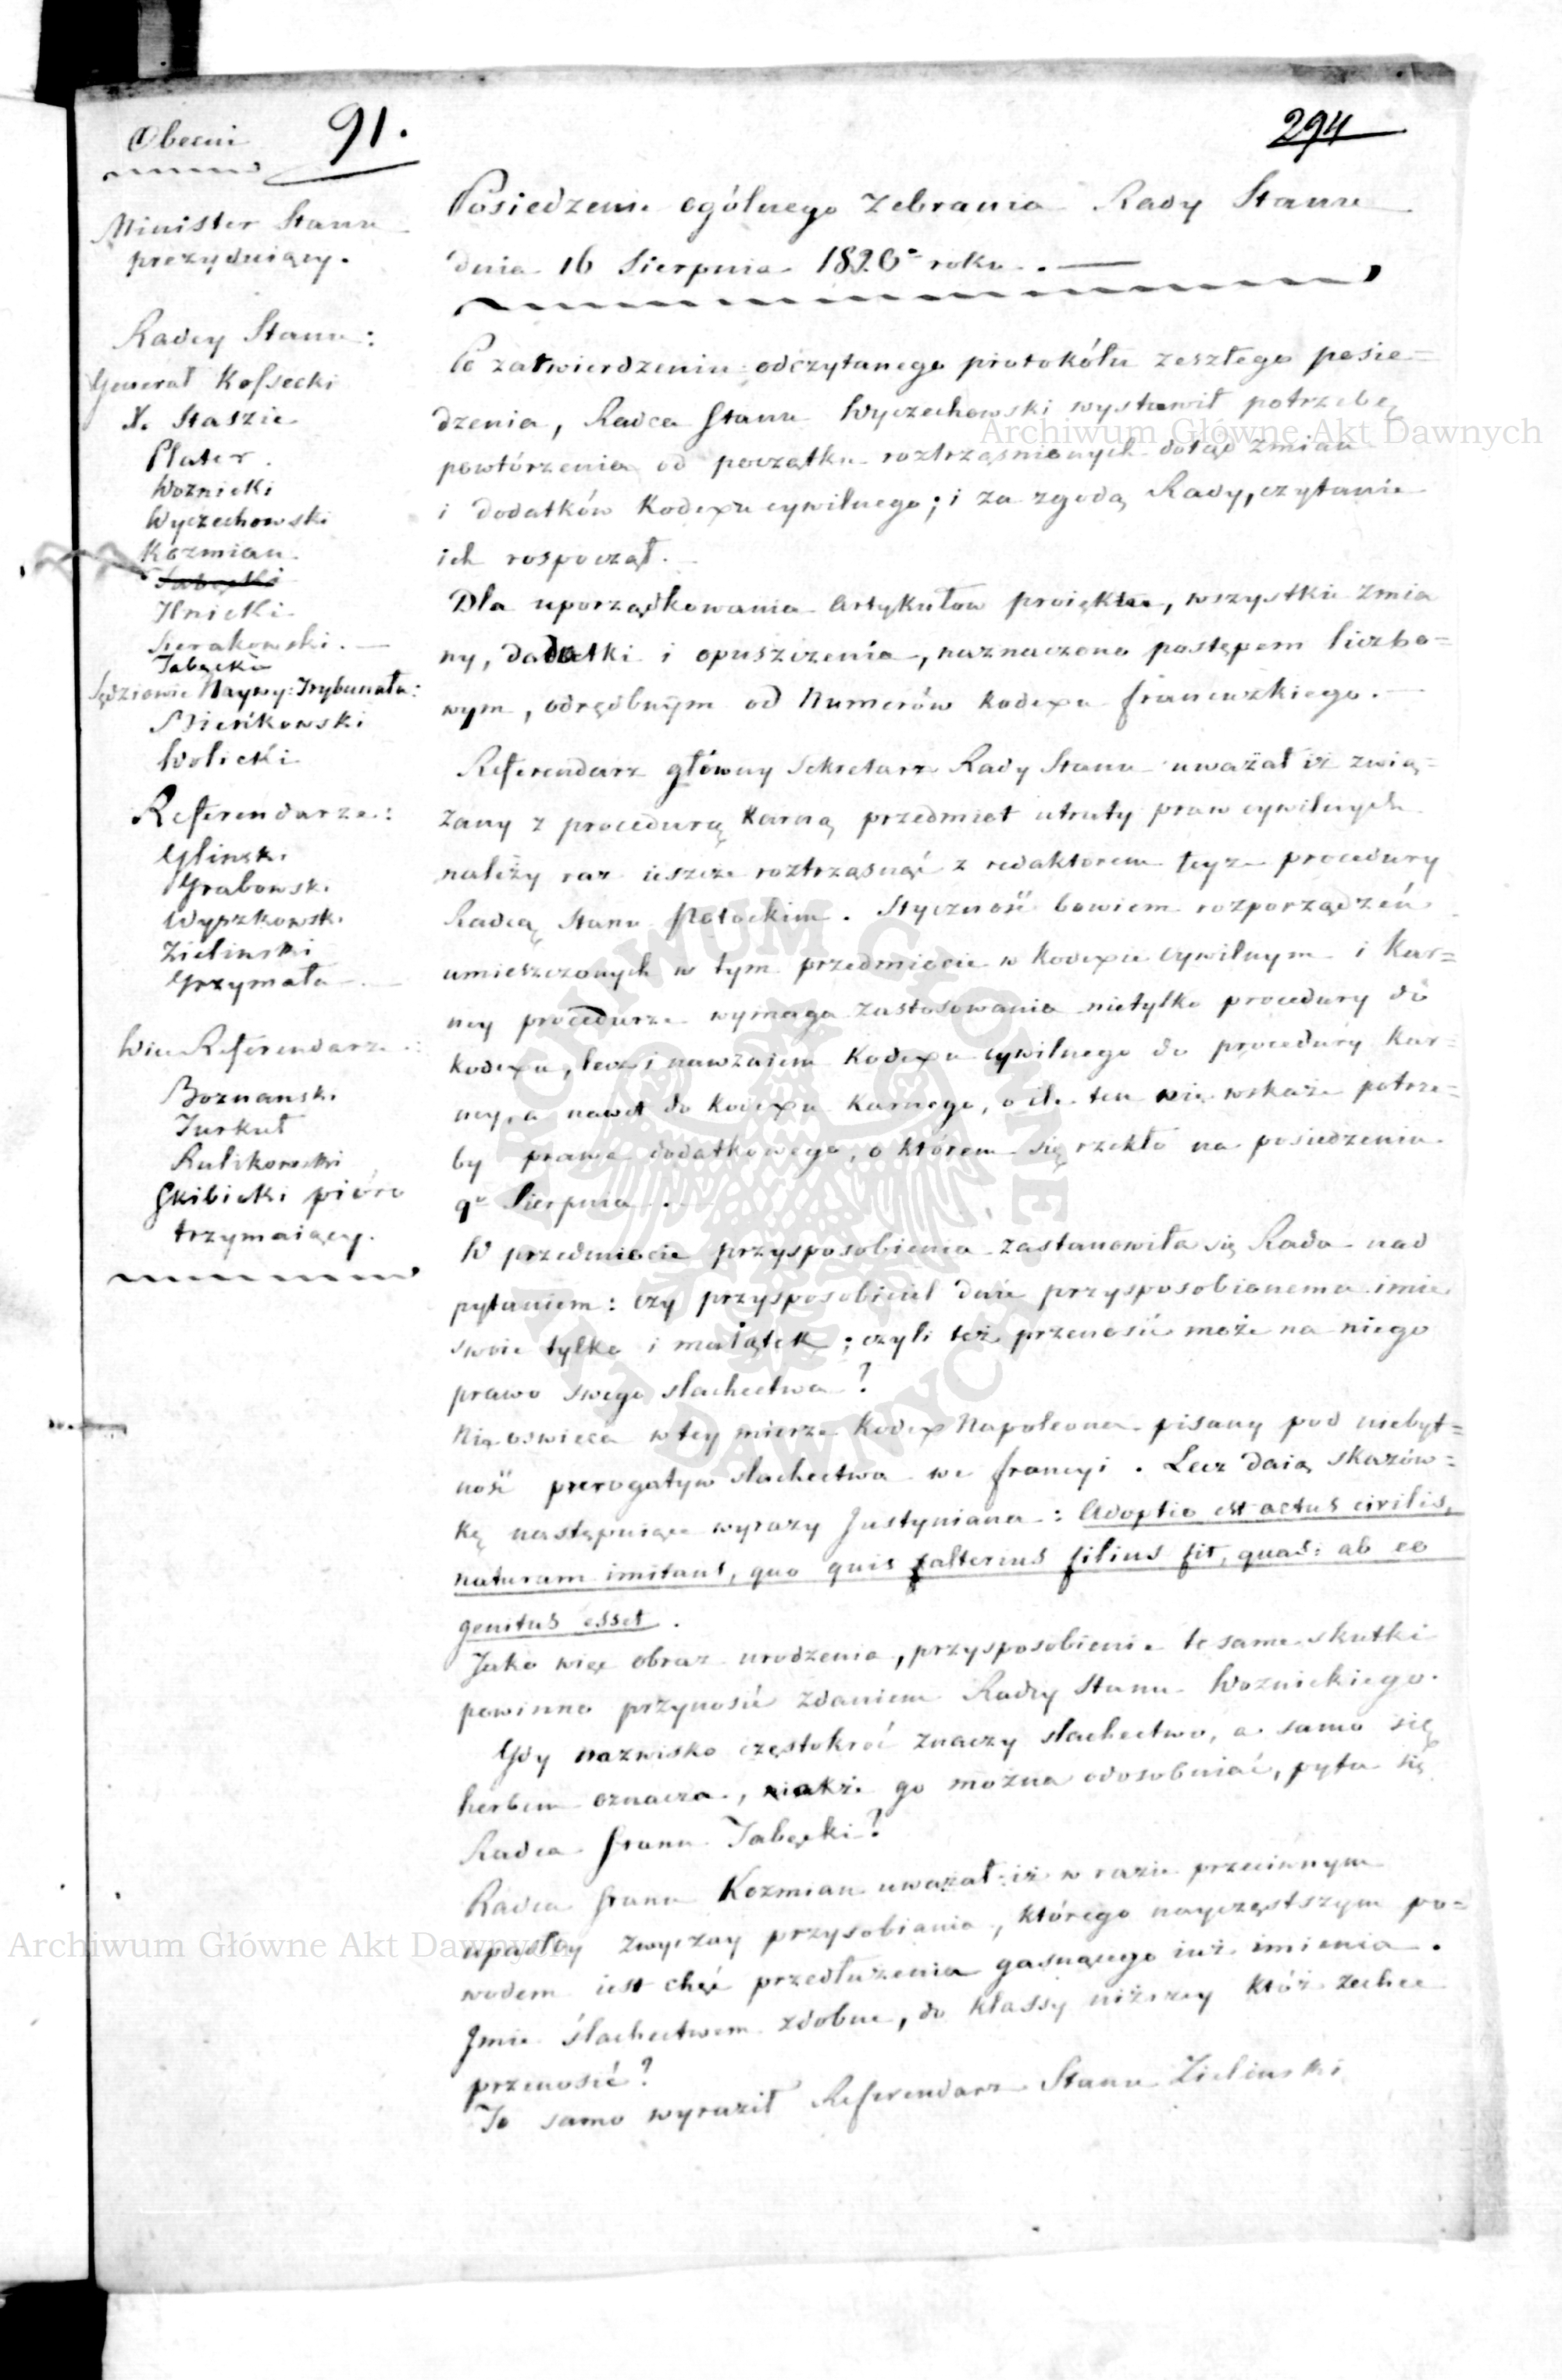 Obecni
91.
294
Minister Stanu
prezyduiący.
Radcy Stanu:
Generał Kossecki
X. Staszic
Plater.
Woźnicki
Wyczechowski
Kozmian.
Tabęcki
Ilnicki
Sierakowski.
Tabęcki
Sędziowie Naywy: Trybunału:
Mieńkowski
Wolicki
Referendarze:
Glinski
Grabowski
Wyszkowski
Zielinski
Grzymała
Wice Referendarze:
Boznanski
Turkuł
Rulikowski
Skibicki pióro
trzymaiący.
Posiedzenie ogólnego Zebrania Rady Stanu
dnia 16 Sierpnia 1820 roku.
Po zatwierdzeniu odczytanego protokółu zeszłego posie=
dzenia, Radca Stanu Wyczechowski wystawił potrzebę
powtórzenia od początku roztrząśnionych dotąd zmian
i dodatków Kodexu cywilnego; i za zgodą Rady, czytanie
ich rospoczął.
Dla uporządkowania Artykułów proiektu, wszystkie zmia
ny, dodatki i opuszczenia, naznaczono postępem liczbo=
wym, odrębnym od Numerów Kodexu francuzkiego.
Referendarz główny Sekretarz Rady Stanu uważał iż zwią=
zany z procedurą karną przedmiot utraty praw cywilnych
należy raz ieszcze roztrząsnąć z redaktorem teyze procedury
Radcą Stanu Potockim. Styczność bowiem rozporządzeń
umieszczonych w tym przedmiocie w Kodexie cywilnym i Kar=
ney procedurze wymaga zastosowania nietylko procedury do
Kodexu, lecz i nawzaiem Kodexu cywilnego do procedury Kar=
ney, a nawet do Kodexu Karnego, o ile ten nie wskaże potrze=
by prawa dodatkowego, o którem się rzekło na posiedzeniu
9º Sierpnia.
W przedmiocie przysposobienia zastanowiła się Rada nad
pytaniem: czy przysposobiciel daie przysposobionemu imie
swoie tylko i maiątek; czyli też przenosić może na niego
prawo swego slachectwa?
Nie oswieca w tey mierze Kodex Napoleona pisany pod niebyt=
ność prerogatyw slachectwa we francyi. Lecz daią skazów=
kę następuiące wyrazy Justyniana: Adoptio est actus civilis,
naturam imitans, quo quis alterius filius fit, quasi ab eo
genitus esset.
Jako więc obraz urodzenia, przysposobienie te same skutki
powinno przynosić zdaniem Radcy Stanu Woznickiego.
Gdy nazwisko częstokroć znaczy slachectwo, a samo się
herbem oznacza, iakże go można odosobniać, pyta się
Radca Stanu Tabęcki?
Radca Stanu Kozmian uważał iż w razie przeciwnym
upadłby zwyczay przysobiania, którego nayczęstszym po=
wodem iest chęć przedłużenia gasnącego iuż imienia.
Imie ślachectwem zdobne, do klassy niższey któż zechce
przenosić?
To samo wyraził Referendarz Stanu Zielinski
Archiwum Główne Akt Dawnych
Archiwum Główne Akt Dawnych
ARCHIWUM GŁÓWNE AKT DAWNYCH